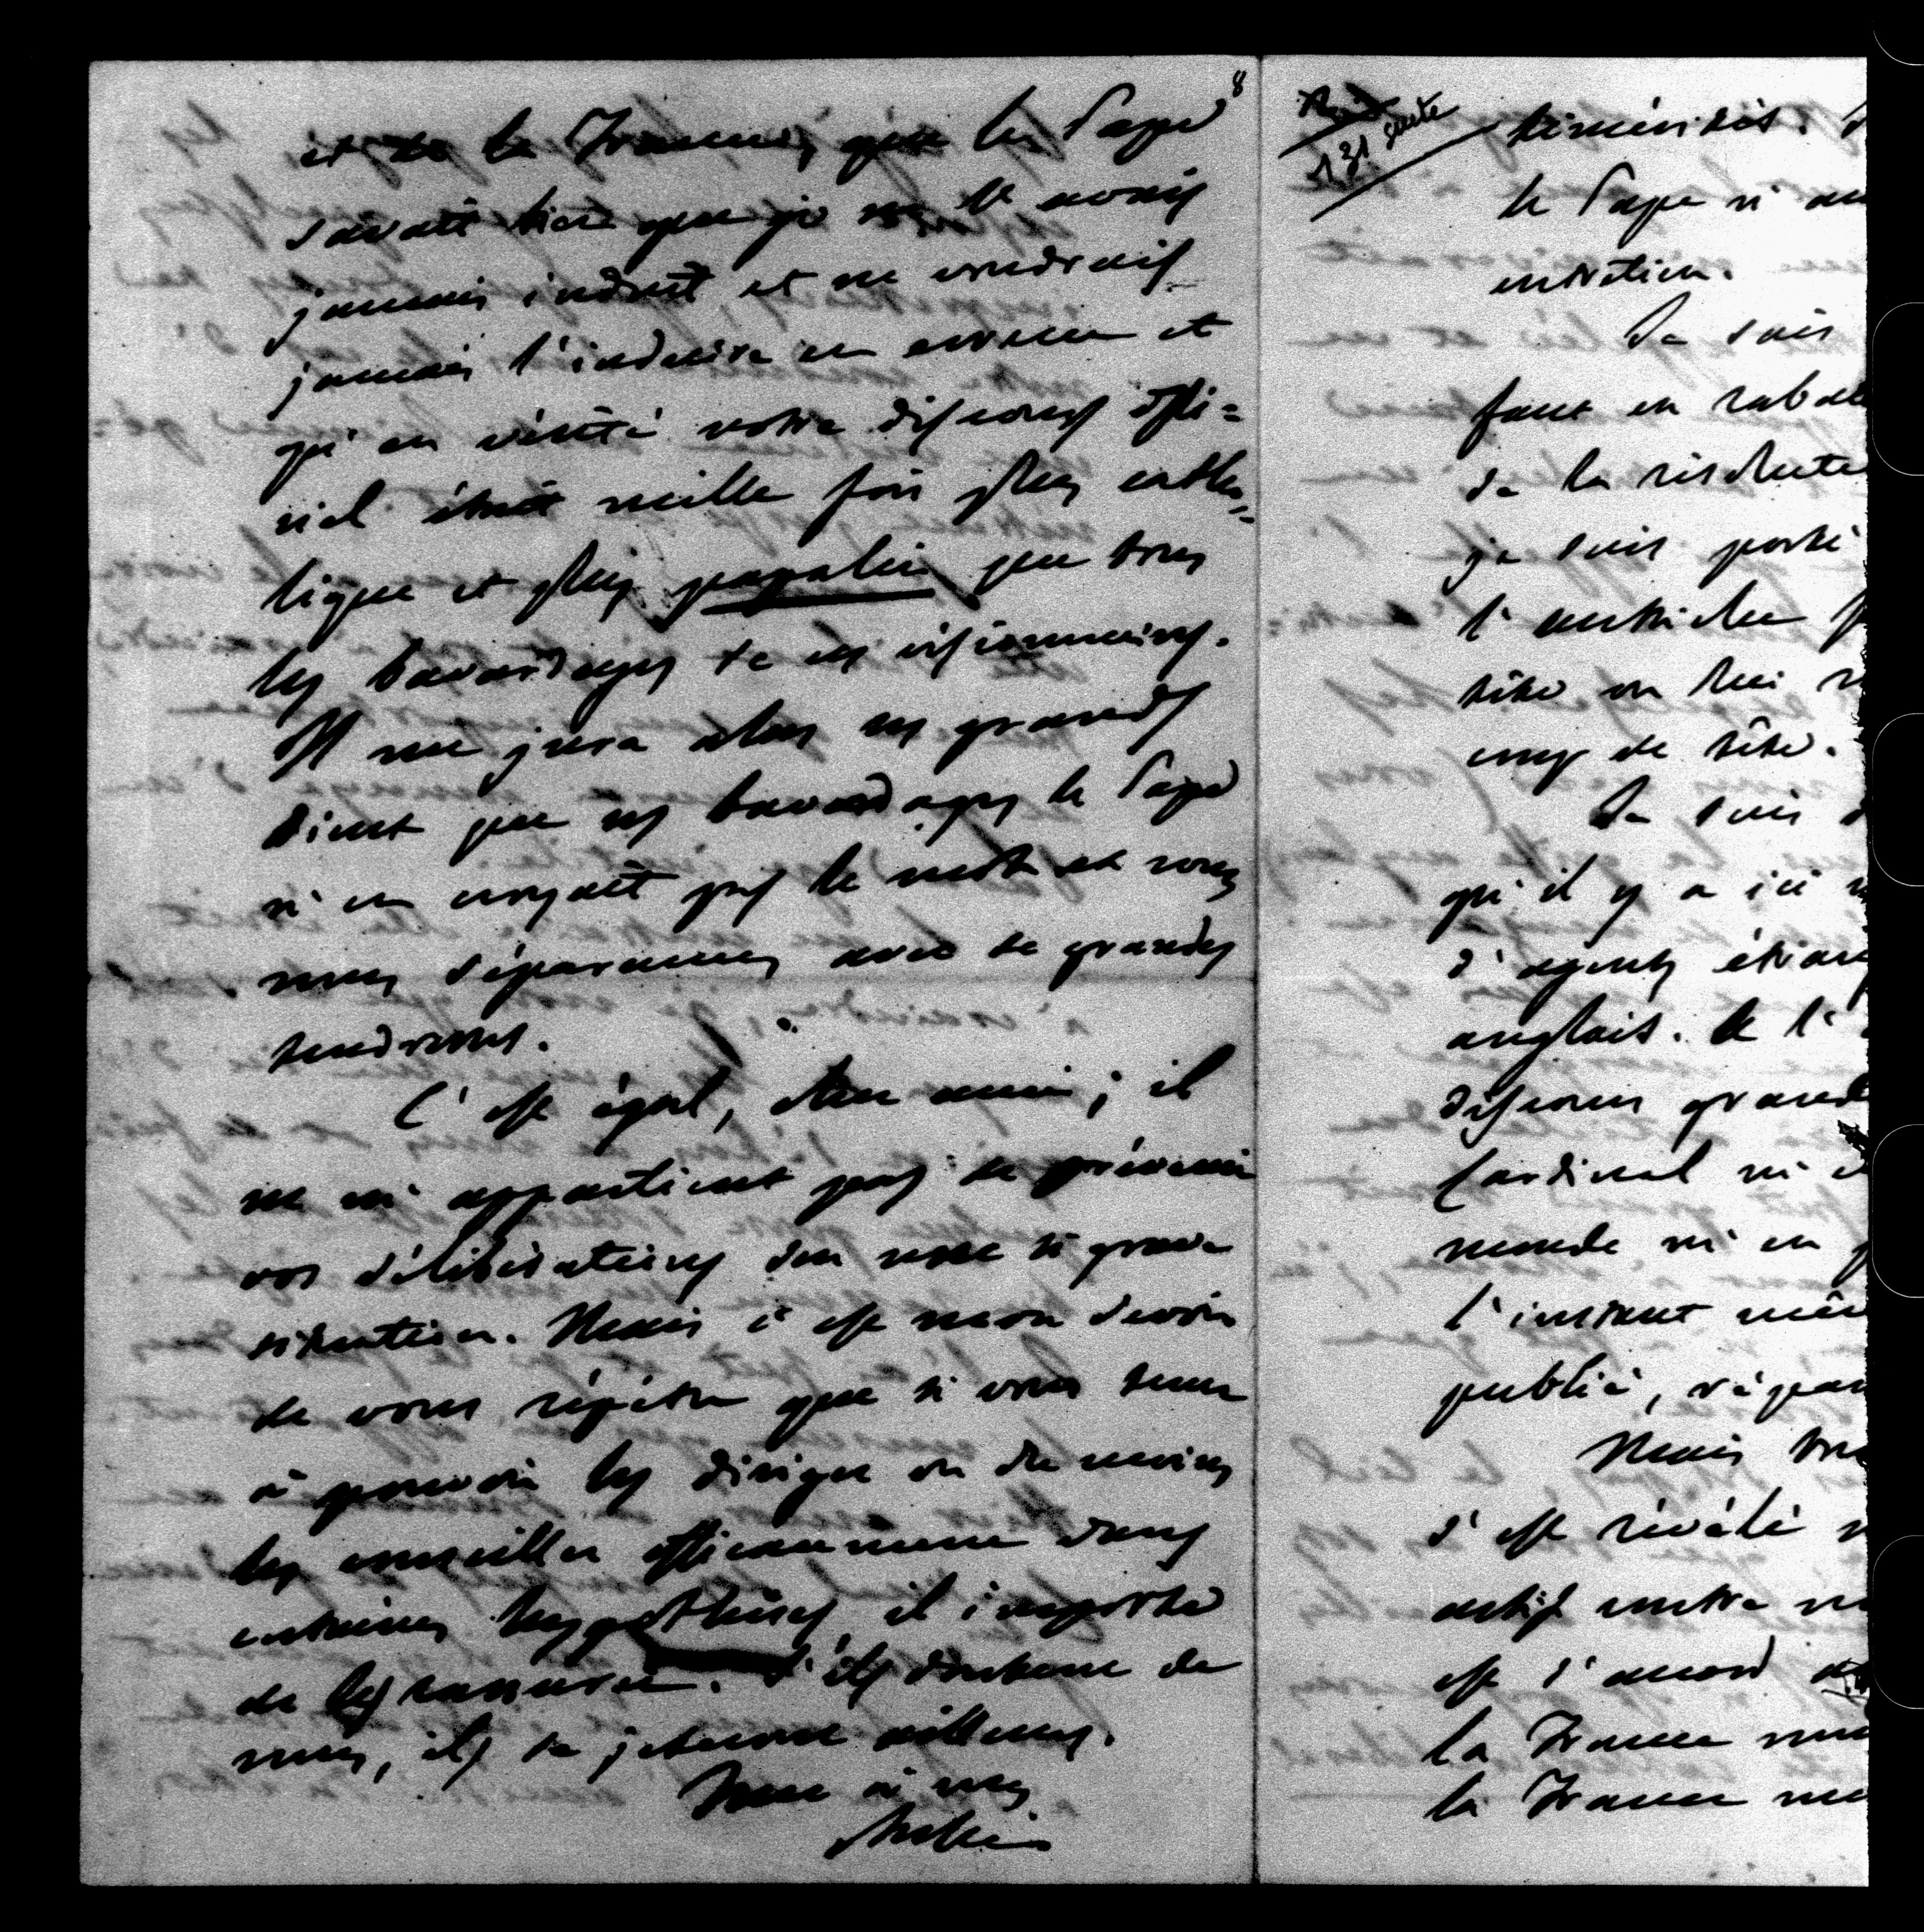 8
et de la France, que le Pape
savait bien que je ne l'avais
jamais induit et ne voudrais
jamais l'induire en erreur et
qu'en vérité votre discours offi=
ciel était mille fois plus catho=
lique et plus papalin que tous
les bavardages de ces visionnaires.
Il me jura alors ses grands
dieux que ces bavardages le Pape
n'en croyait pas le mot et nous
nous séparames avec de grandes
tendresses.
C'est égal, cher ami; il
ne m'appartient pas de prévenir
vos délibérations dans une si grave
situation. Mais c'est mon devoir
de vous répéter que si vous tenez
à pouvoir les diriger ou du moins
les conseiller efficacement dans
certaines hypothèses, il importe
de les rassurer. S'ils doutent de
nous, ils se jeteront ailleurs.
Tout à vous
131 suite
témérités.
le Pape ni au
entretien.
Je sais
faut en rabat
de la
je suis porté
l'
tête on lui
coup de tête.
Je suis
qu'il y a ici
d'agents étran
anglais. de l'
discours grand
Cardinal ni
monde ni en
l'instant mêm
publié, répan
Mais
s'est révélé
actif contre
est d'accord
la France
la France